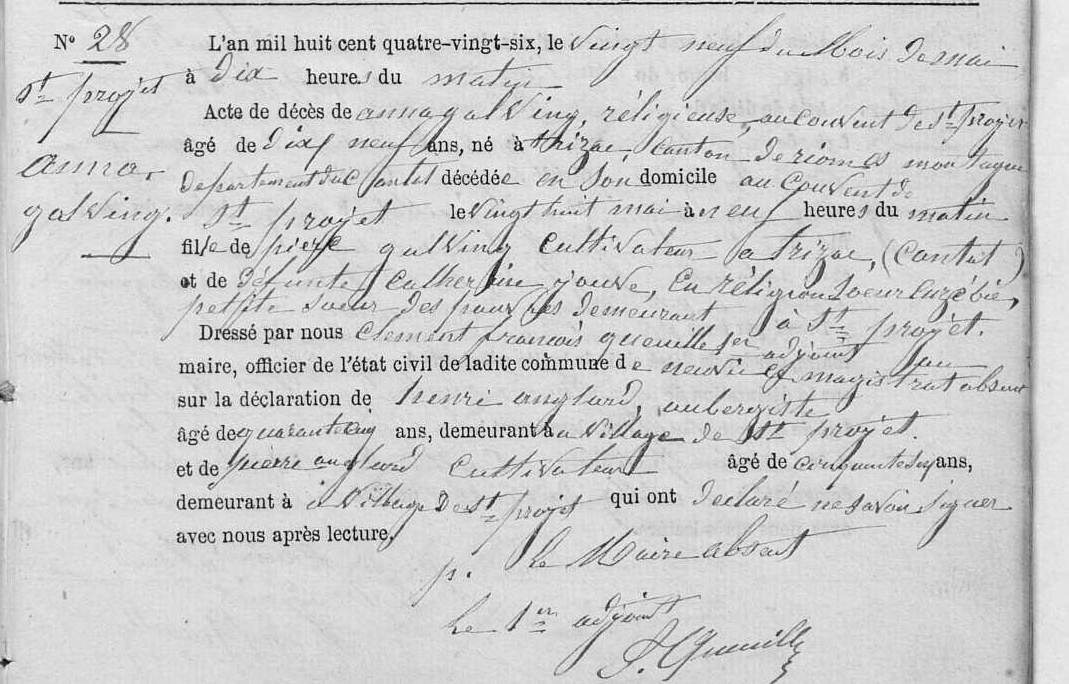 N° 28
St projet
anna
galving.
L'an mil huit cent quatre-vingt-six, le vingt neuf du Mois de mai
à dix heures du matin
Acte de décès de anna galving, réligieuse, au couvent de St projet
âgé de dix neuf ans, né à trizac, Canton de riom es montagne
departement du Cantal décédée en son domicile au Couvent de
St projet le vingt huit mai à neuf heures du matin
fille de pierre galving Cultivateur a trizac, (Cantal)
et de défunte Catherine jouve, En réligion Soeur
petite soeur des pauvres demeurant à St projet.
Dressé par nous Clement françois queuille 1er adjoint au
maire, officier de l'état civil de ladite commune de neuvic magistrat absent
sur la déclaration de henri anglard, aubergiste
âgé de quarante ans, demeurant à au Village de St projet.
et de pierre anglard Cultivateur âgé de cinquante ans,
demeurant à Village de St projet qui ont declaré ne savoir signer
avec nous après lecture.
p. Le Maire absent
Le 1er adjoint
F. Queuille